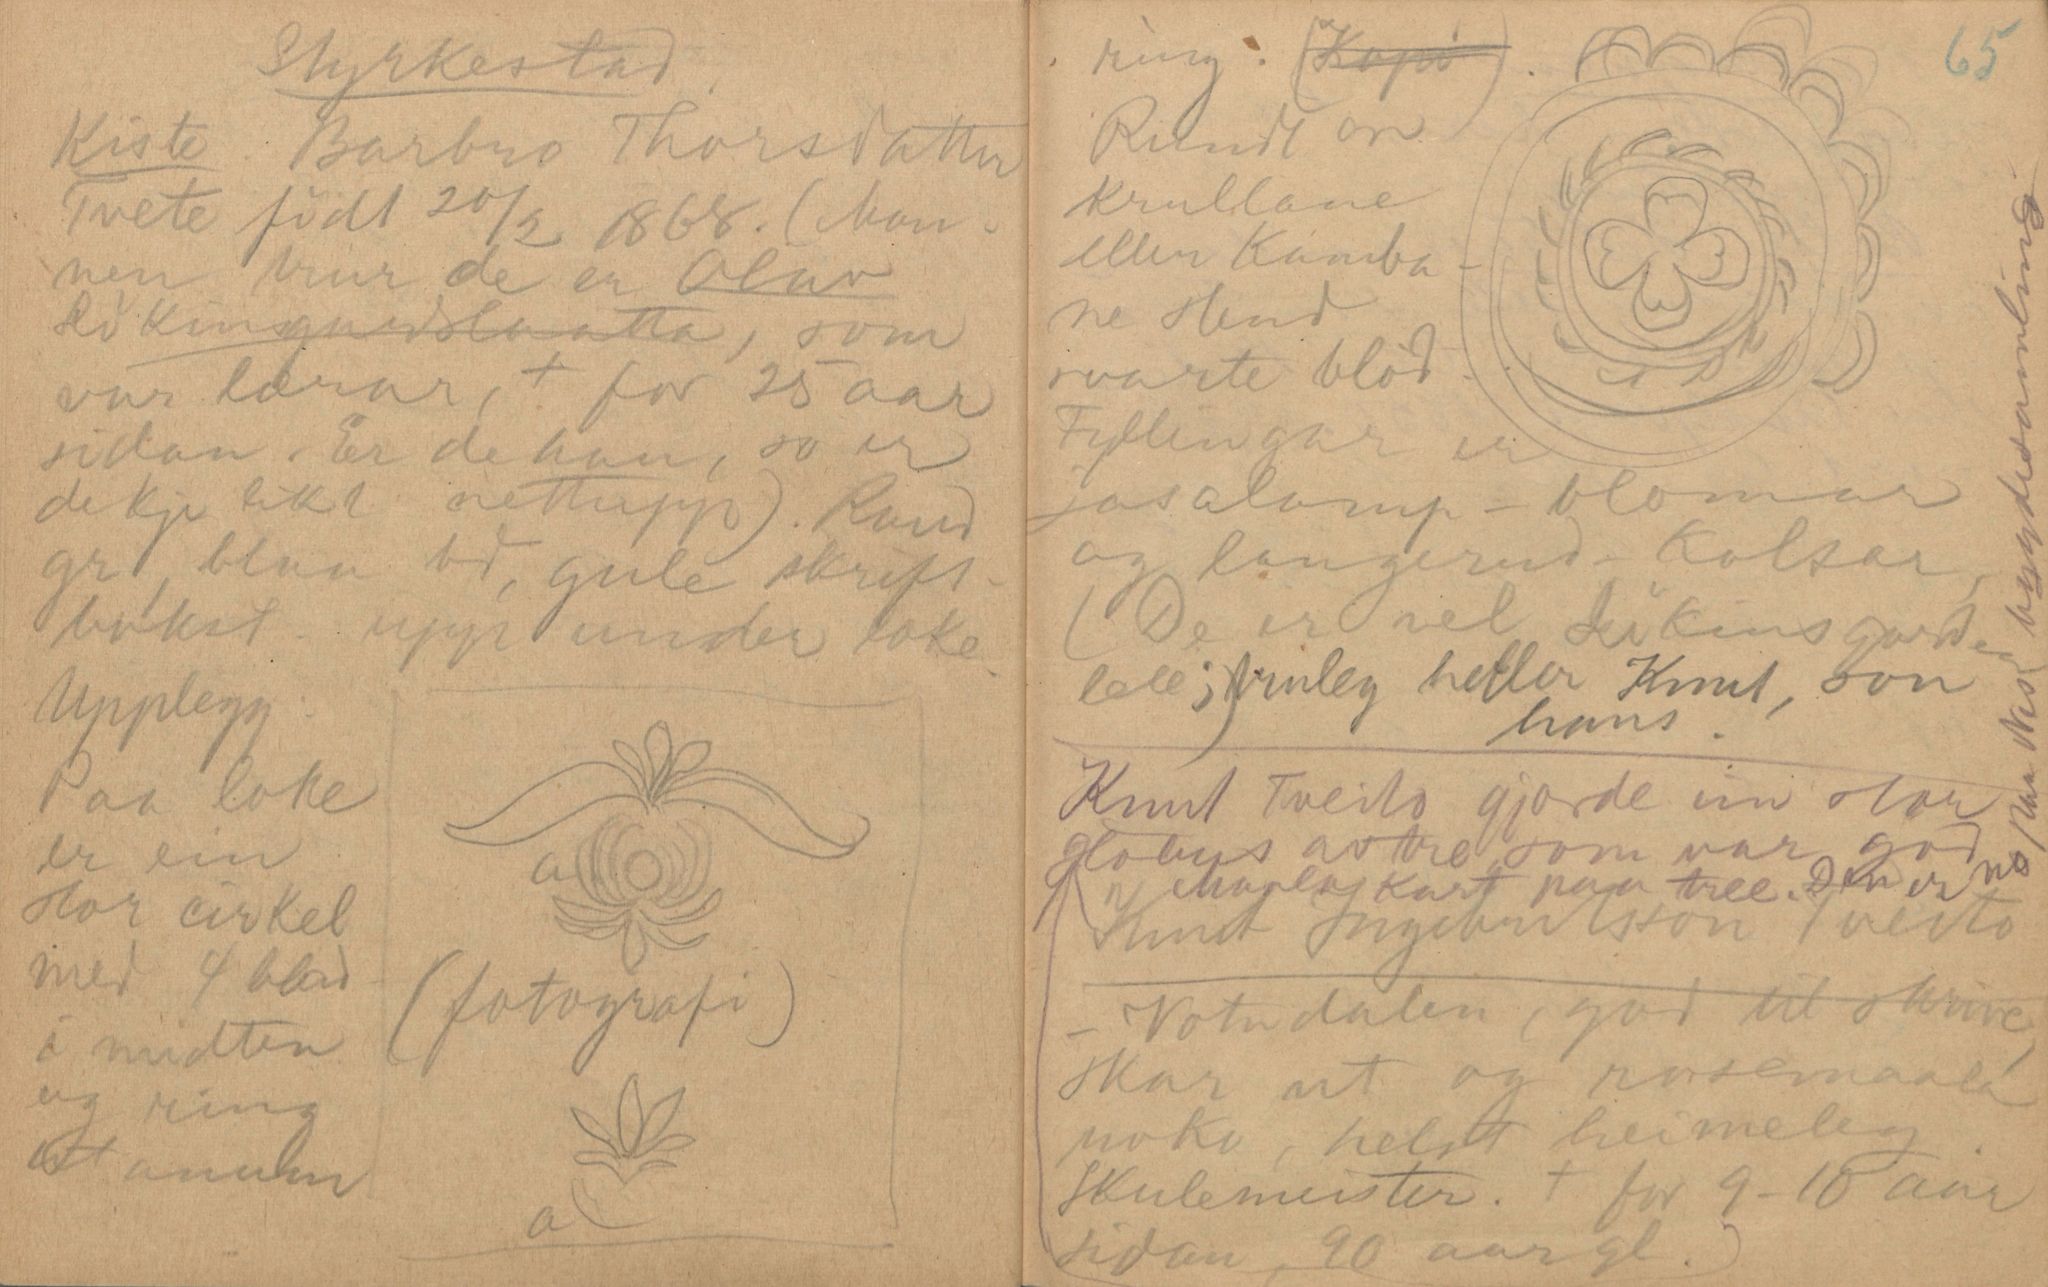 Styrkestad.
Kiste. Barbro Thorsdatter
Tvete födt 20/2 1868. (Man-
nen trur de er Olav
som
var lærar, † for 25 aar
sidan. Er de han, so er
de kje likt nettupp). Raud
gr, blaa bd, gule skrift-
bokst. upp under loke.
Upplegg.
Paa loke
er ein
stor cirkel
med 4 blad
i midten
og ring
anum
a
(fotografi)
a
65
ring. (Kopi).
Rundt om
krullane
eller Kamba-
ne stend
svarte blöd.
Fyllingar er
josalamp-blomar
og langerud-Kolsar,
(De er vel
lell; truleg heller Knut, son
hans.
Knut Tveito gjorde ein stor
globus av tre, som var god
kart paa tree. Den er no paa Nes bygdesamling
Knut Ingebretsson Tveito
- Votndalen, god til skrive,
skar ut og rosemaala
noko, helst heimeleg.
Skulemeister. † for 9-10 aar
sidan, 90 aar gl.)